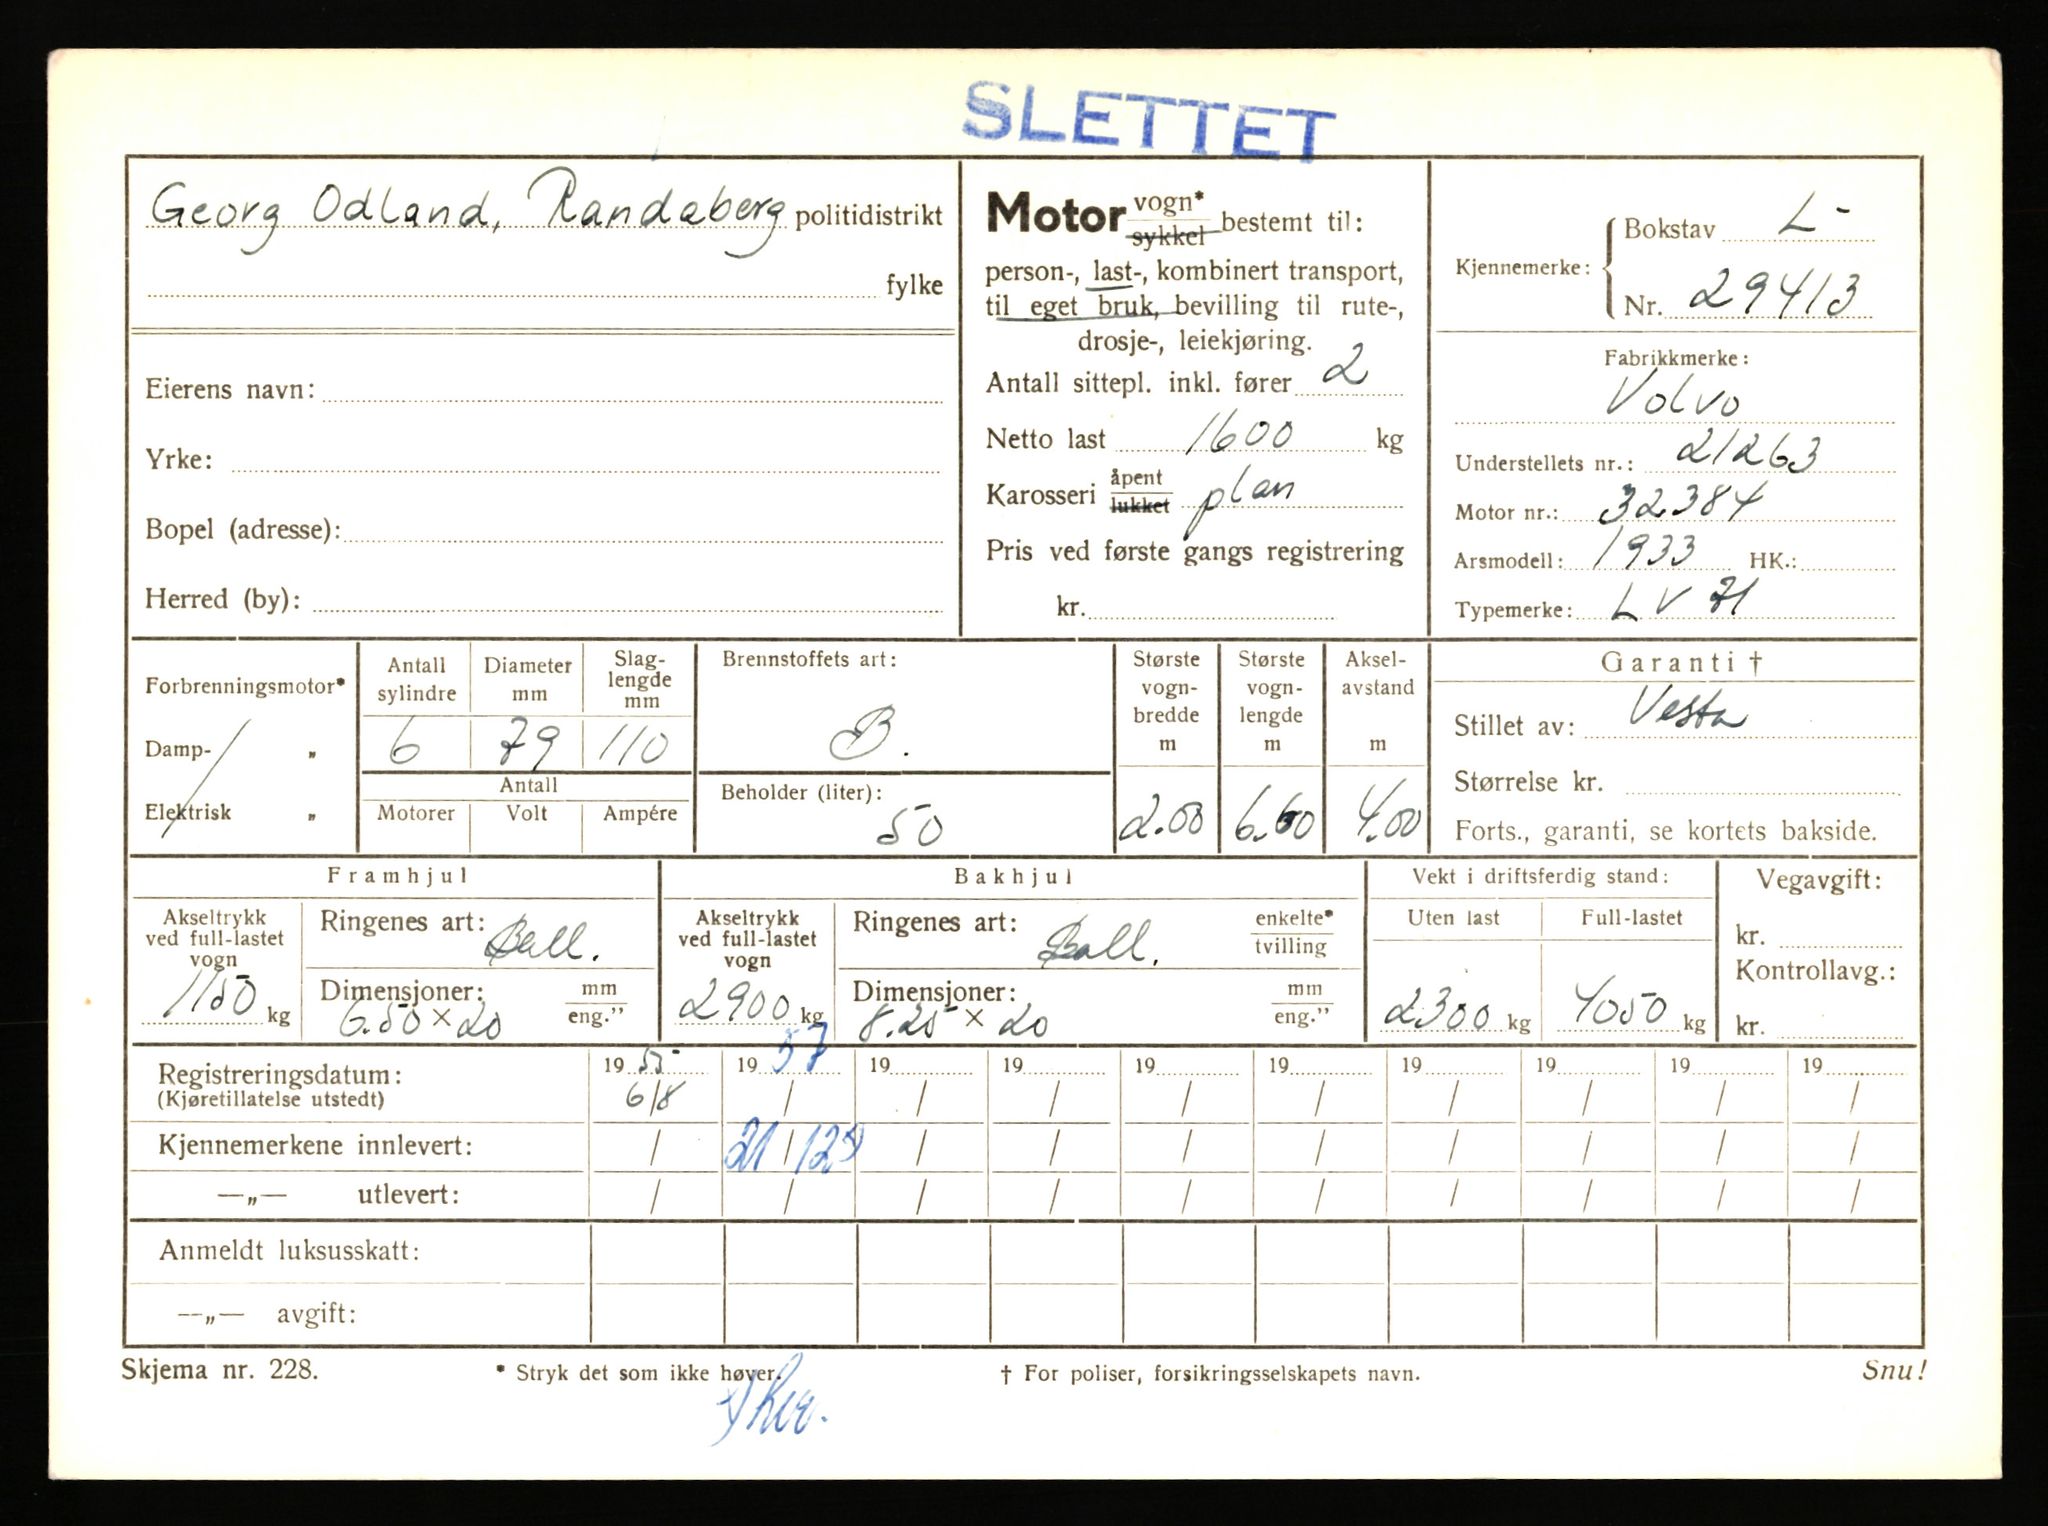 SLETTET
Georg Odland, Randaberg politidistrikt
fylke
Eierens navn:
Yrke:
Bopel (adresse):
Herred (by):
Motor vogn* sykkel bestemt til:
person-, last-, kombinert transport,
til eget bruk, bevilling til rute-,
drosje-, leiekjøring.
Antall sittepl. inkl. fører 2
Netto last 1600 kg
Karosseri åpent lukket plan
Pris ved første gangs registrering
kr.
Kjennemerke: Bokstav L-
Nr. 29413
Fabrikkmerke:
Volvo
Understellets nr.: 21263
Motor nr.: 32384
Arsmodell: 1933 HK.:
Typemerke: LV 71
Forbrenningsmotor*
Damp- „
Elektrisk „
Antall sylindre Diameter mm Slag-lengde mm
6 79 110
Antall
Motorer Volt Ampére
Brennstoffets art:
B.
Beholder (liter):
50
Største vogn-bredde m Største vogn-lengde m Aksel-avstand m
2.00 6.60 4.00
Garanti †
Stillet av: Vesta
Størrelse kr.
Forts., garanti, se kortets bakside.
Framhjul
Akseltrykk ved full-lastet vogn
1150 kg
Ringenes art: Ball.
Dimensjoner: mm eng.”
6.50 × 20
Bakhjul
Akseltrykk ved full-lastet vogn
2900 kg
Ringenes art: Ball. enkelte* tvilling
Dimensjoner: mm eng.”
8.25 × 20
Vekt i driftsferdig stand:
Uten last Full-lastet
2300 kg 4050 kg
Vegavgift:
kr.
Kontrollavg.:
kr.
Registreringsdatum: 19 55 19 57 19 19 19 19 19 19 19 19
(Kjøretillatelse utstedt) 6/8 / / / / / / / / /
Kjennemerkene innlevert: / 21/12 / / / / / / / /
—„— utlevert: / / / / / / / / / /
Anmeldt luksusskatt:
—„— avgift:
Skjema nr. 228. * Stryk det som ikke høver. † For poliser, forsikringsselskapets navn. Snu!